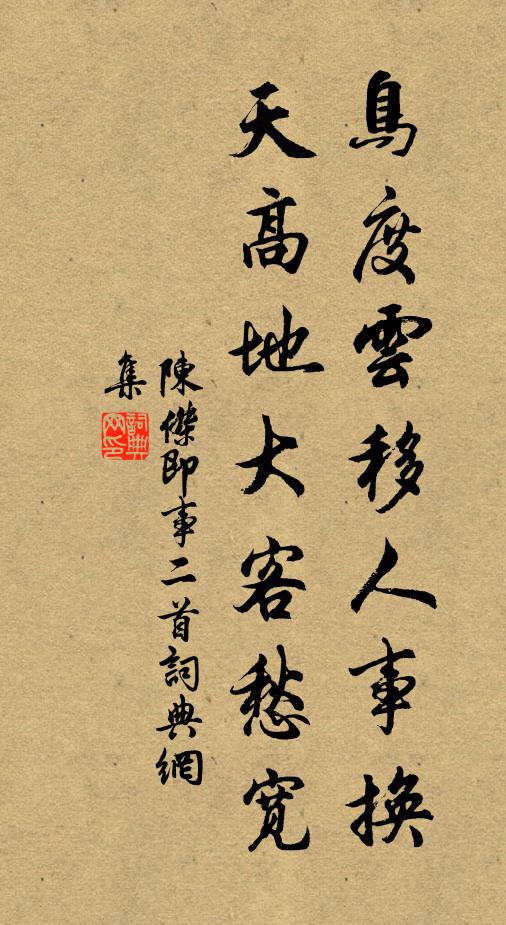 鳥度雲移人事換
天高地大客愁寬
陳傑即事二首詞典網
集
詞典网印